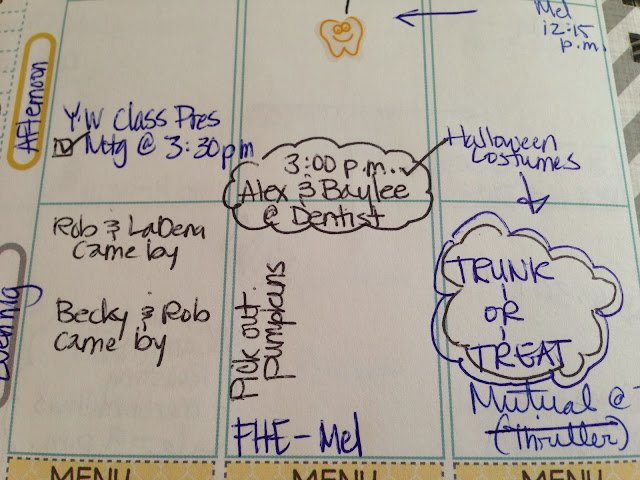 Mel
12:15
p.m.
Afternoon
YW Class Pres
Mtg @ 3:30pm
3:00 p.m.
Alex & Baylee
@ Dentist
Halloween
Costumes
Evening
Rob & LaDena
came by
Becky & Rob
came by
Pick out
Pumpkins
FHE - Mel
TRUNK
OR
TREAT
Mutual @
(Thriller)
MENU
MENU
MENU